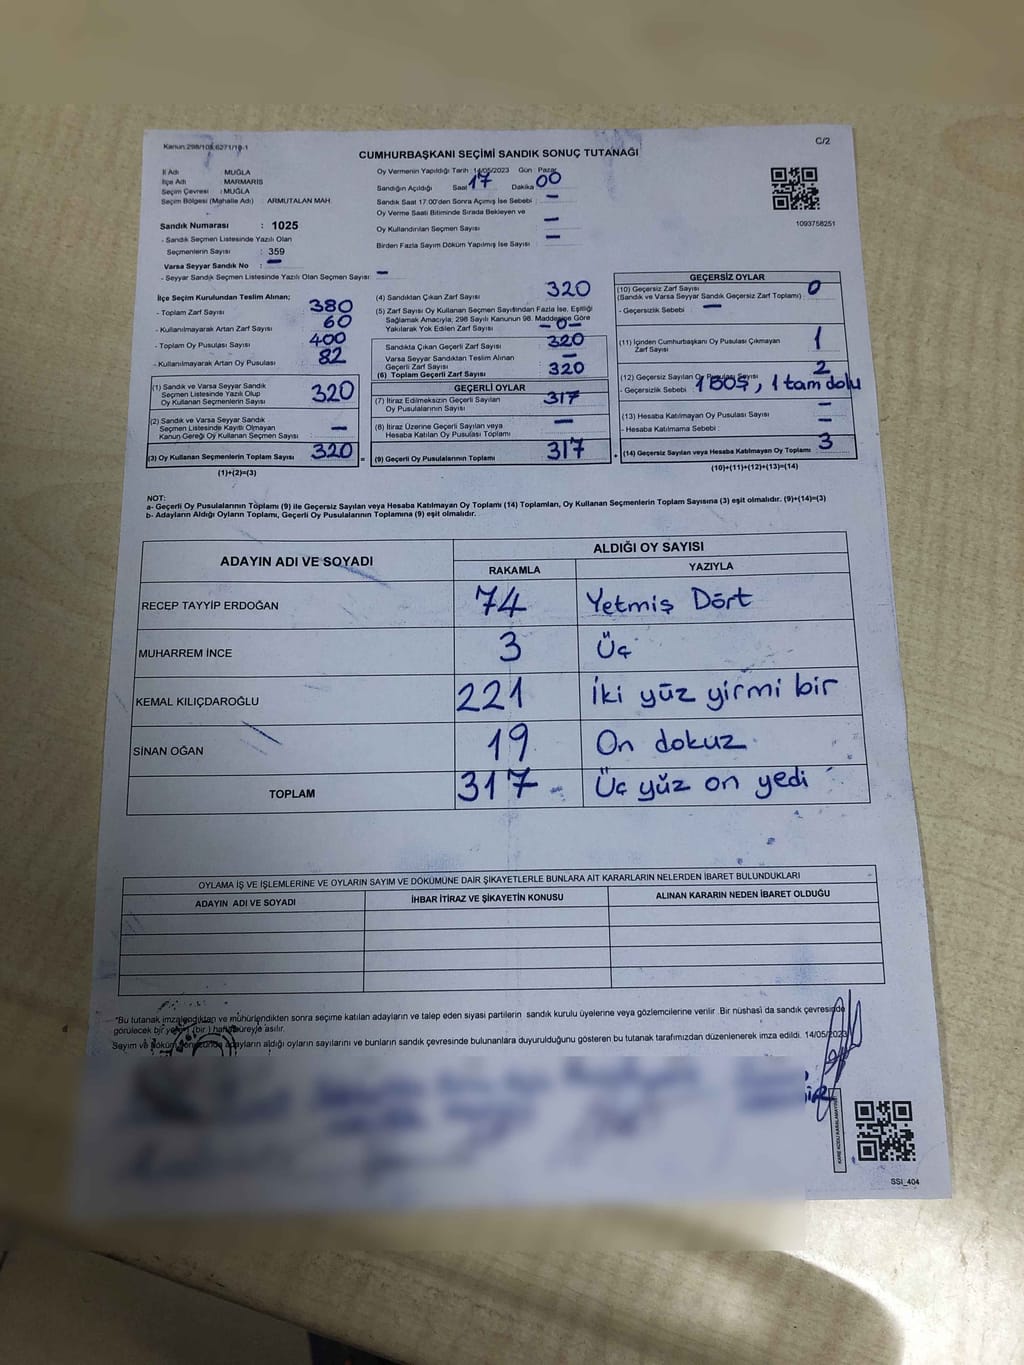 Kanun:298/105,6271/19-1
C/2
CUMHURBAŞKANI SEÇİMİ SANDIK SONUÇ TUTANAĞI
İl Adı : MUĞLA
İlçe Adı : MARMARİS
Seçim Çevresi : MUĞLA
Seçim Bölgesi (Mahalle Adı) : ARMUTALAN MAH.
Sandık Numarası : 1025
- Sandık Seçmen Listesinde Yazılı Olan
Seçmenlerin Sayısı : 359
Varsa Seyyar Sandık No : -
- Seyyar Sandık Seçmen Listesinde Yazılı Olan Seçmen Sayısı: -
Oy Vermenin Yapıldığı Tarih 14/05/2023 Gün Pazar
Sandığın Açıldığı Saat 17 Dakika 00
Sandık Saat 17.00'den Sonra Açılmış İse Sebebi : -
Oy Verme Saati Bitiminde Sırada Bekleyen ve
Oy Kullandırılan Seçmen Sayısı : -
Birden Fazla Sayım Döküm Yapılmış İse Sayısı : -
1093758251
İlçe Seçim Kurulundan Teslim Alınan;
- Toplam Zarf Sayısı : 380
- Kullanılmayarak Artan Zarf Sayısı : 60
- Toplam Oy Pusulası Sayısı : 400
- Kullanılmayarak Artan Oy Pusulası : 82
(1) Sandık ve Varsa Seyyar Sandık
Seçmen Listesinde Yazılı Olup
Oy Kullanan Seçmenlerin Sayısı : 320
(2) Sandık ve Varsa Seyyar Sandık
Seçmen Listesinde Kayıtlı Olmayan
Kanun Gereği Oy Kullanan Seçmen Sayısı : -
(3) Oy Kullanan Seçmenlerin Toplam Sayısı : 320
(1)+(2)=(3)
(4) Sandıktan Çıkan Zarf Sayısı : 320
(5) Zarf Sayısı Oy Kullanan Seçmen Sayısından Fazla İse, Eşitliği
Sağlamak Amacıyla, 298 Sayılı Kanunun 98. Maddesine Göre
Yakılarak Yok Edilen Zarf Sayısı : -0-
Sandıkta Çıkan Geçerli Zarf Sayısı : 320
Varsa Seyyar Sandıktan Teslim Alınan
Geçerli Zarf Sayısı : -
(6) Toplam Geçerli Zarf Sayısı : 320
GEÇERLİ OYLAR
(7) İtiraz Edilmeksizin Geçerli Sayılan
Oy Pusulalarının Sayısı : 317
(8) İtiraz Üzerine Geçerli Sayılan veya
Hesaba Katılan Oy Pusulası Toplamı : -
(9) Geçerli Oy Pusulalarının Toplamı : 317
GEÇERSİZ OYLAR
(10) Geçersiz Zarf Sayısı
(Sandık ve Varsa Seyyar Sandık Geçersiz Zarf Toplamı) : 0
- Geçersizlik Sebebi : -
(11) İçinden Cumhurbaşkanı Oy Pusulası Çıkmayan
Zarf Sayısı : 1
(12) Geçersiz Sayılan Oy Pusulası Sayısı : 2
- Geçersizlik Sebebi : 1 BOŞ, 1 tam dolu
(13) Hesaba Katılmayan Oy Pusulası Sayısı : -
- Hesaba Katılmama Sebebi : -
(14) Geçersiz Sayılan veya Hesaba Katılmayan Oy Toplamı : 3
(10)+(11)+(12)+(13)=(14)
NOT:
a- Geçerli Oy Pusulalarının Toplamı (9) ile Geçersiz Sayılan veya Hesaba Katılmayan Oy Toplamı (14) Toplamları, Oy Kullanan Seçmenlerin Toplam Sayısına (3) eşit olmalıdır. (9)+(14)=(3)
b- Adayların Aldığı Oyların Toplamı, Geçerli Oy Pusulalarının Toplamına (9) eşit olmalıdır.
ADAYIN ADI VE SOYADI ALDIĞI OY SAYISI
RAKAMLA YAZIYLA
RECEP TAYYİP ERDOĞAN 74 Yetmiş Dört
MUHARREM İNCE 3 Üç
KEMAL KILIÇDAROĞLU 221 İki yüz yirmi bir
SİNAN OĞAN 19 On dokuz
TOPLAM 317 Üç yüz on yedi
OYLAMA İŞ VE İŞLEMLERİNE VE OYLARIN SAYIM VE DÖKÜMÜNE DAİR ŞİKAYETLERLE BUNLARA AİT KARARLARIN NELERDEN İBARET BULUNDUKLARI
ADAYIN ADI VE SOYADI İHBAR İTİRAZ VE ŞİKAYETİN KONUSU ALINAN KARARIN NEDEN İBARET OLDUĞU
*Bu tutanak imzalandıktan ve mühürlendikten sonra seçime katılan adayların ve talep eden siyasi partilerin sandık kurulu üyelerine veya gözlemcilerine verilir .Bir nüshası da sandık çevresinde
görülecek bir yere (bir ) hafta süreyle asılır.
Sayım ve döküm sonucunda adayların aldığı oyların sayılarını ve bunların sandık çevresinde bulunanlara duyurulduğunu gösteren bu tutanak tarafımızdan düzenlenerek imza edildi. 14/05/2023
SSİ_404